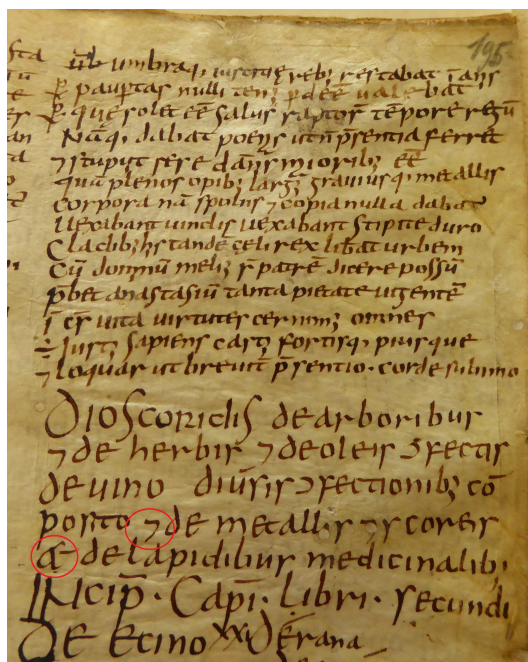 195
umbraq; rebꝫ restabat
ꝑ pauptas nulli ꝑdeē ualebat
ꝑ que solet eē Salus raptoꝝ tēpore regū
Nāq; dabat poenis ut n̄ p̄sentia ferret
⁊ fere eē
quā plenos opibꝫ grauiusq; metallis
corpora nā spoliis ⁊ copia nulla dabat
Uexabant uinclis uexabant stipite duro
Cladibꝫ his tandē celi rex lib̄at urbem
Cū domnū meliꝰ patrē dicere possū
p̄bet anastasiū tanta pietate uigentē
ī uita uirtutes cernimꝰ omnes
Iustꝰ Sapiens castꝰ fortisq; piusque
⁊ loquar ut breuit p̄sentio · corde sub imo
DIOSCORIDIS de arboribus
⁊ de herbis ⁊ de oleis ɔfectis
de uino diūsis ɔfectionibꝫ cō
posito ⁊ de metallis ⁊ scoreis
& de lapidibus medicinalibꝫ
INcip̄ · Capī · libri · secundi
DE Ecino XXI DE rana